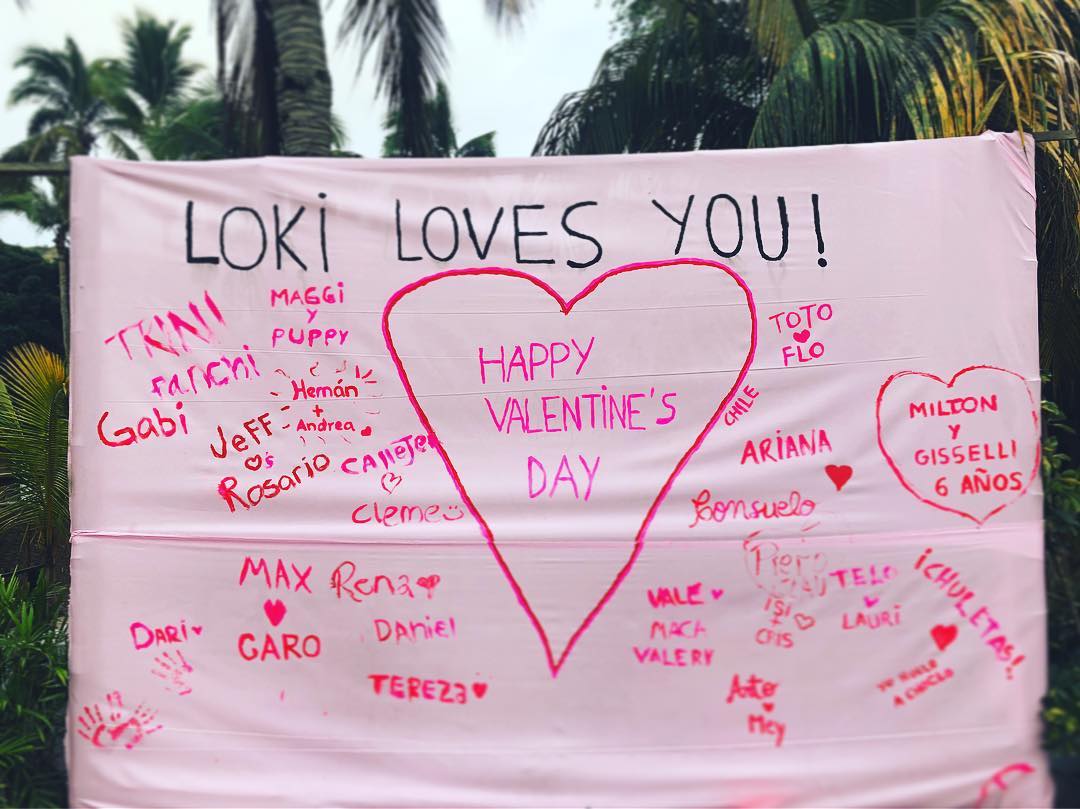 LOKi LOVES YOU!
TRINI
MAGGi
y
PUPPY
Panchi
Hernán
+
Andrea
Gabi
JeFF
Rosario
CAllEJEr
Cleme
HAPPY
VALENTiNE'S
DAY
CHILE
TOTO
FLO
ARiANA
Consuelo
MILTON
Y
GISSELLI
6 AÑOS
MAX
CARO
Rena
Daniel
TEREZ3
DARi
VALE
MACA
VALERY
Piero
ISI
+
CRIS
TELO
LAURi
¡CHULETAS!
A CHOCLO
Mey